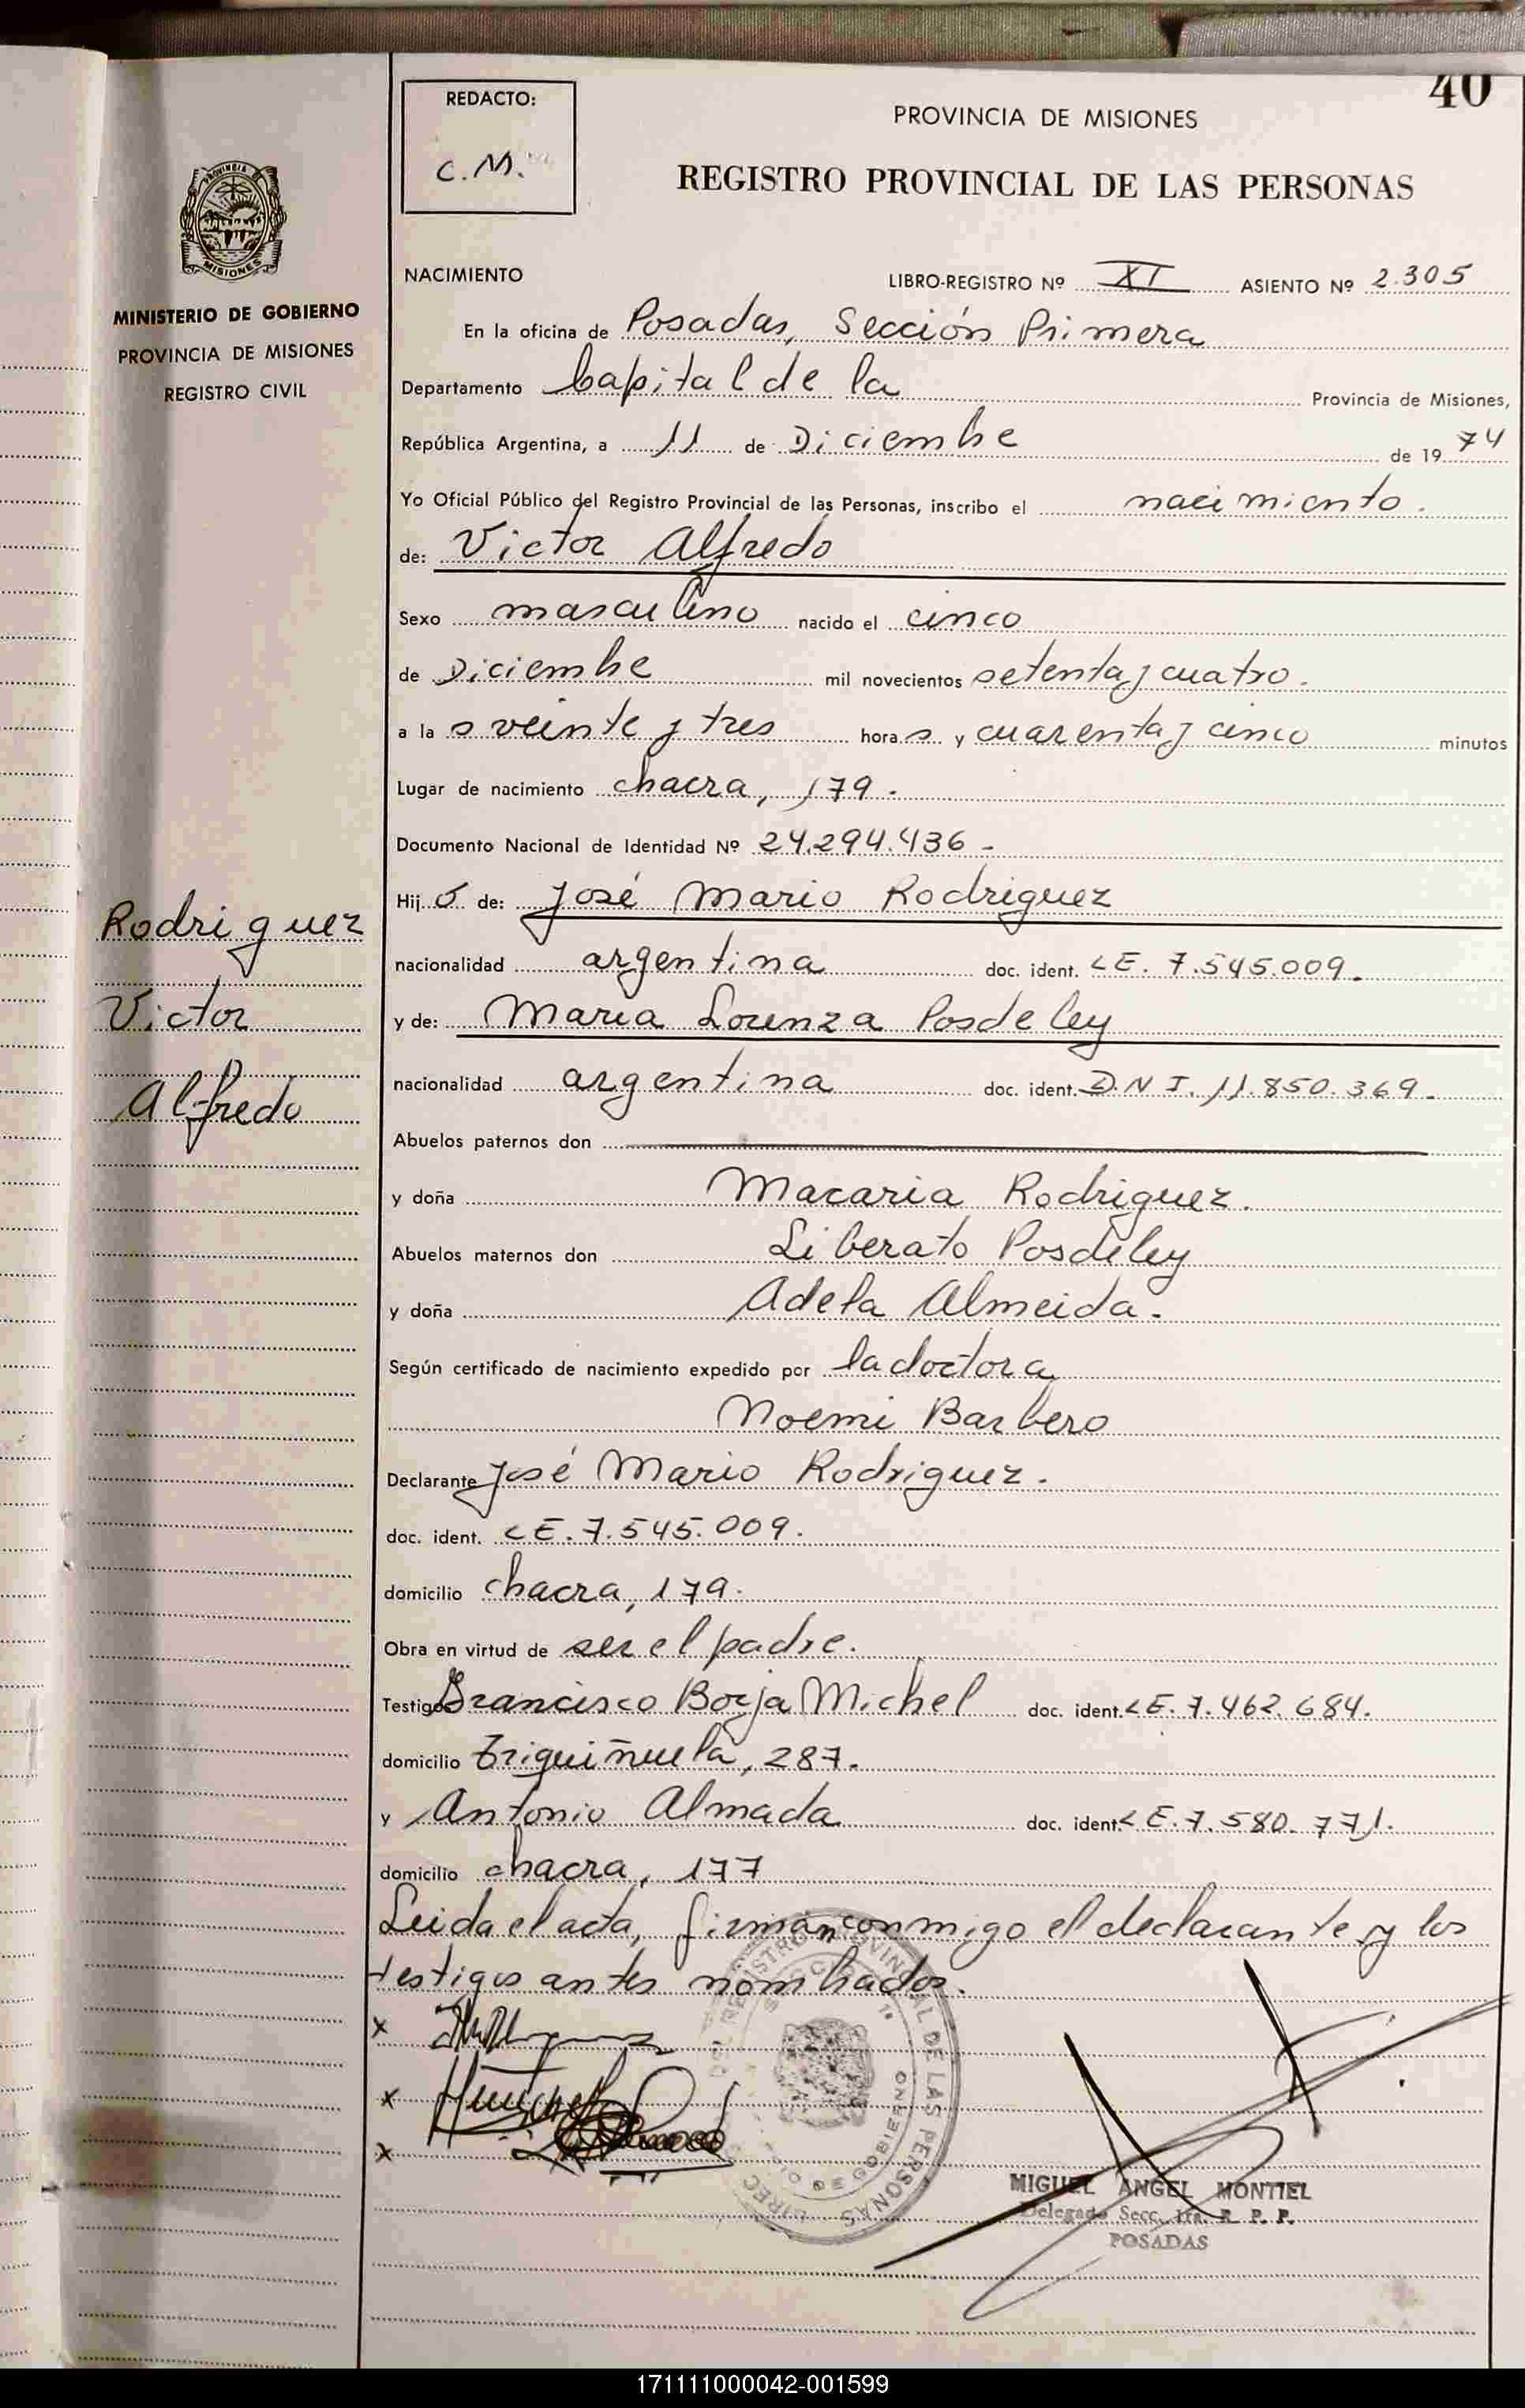 40
REDACTO:
C.M.
PROVINCIA DE MISIONES
REGISTRO PROVINCIAL DE LAS PERSONAS
PROVINCIA DE
MISIONES
MINISTERIO DE GOBIERNO
PROVINCIA DE MISIONES
REGISTRO CIVIL
NACIMIENTO LIBRO-REGISTRO Nº XI ASIENTO Nº 2.305
En la oficina de Posadas, Sección Primera
Departamento Capital de la Provincia de Misiones,
República Argentina, a 11 de Diciembre de 19 74
Yo Oficial Público del Registro Provincial de las Personas, inscribo el nacimiento.
de: Victor Alfredo
Sexo masculino nacido el cinco
de Diciembre mil novecientos setenta y cuatro.
a la s veinte y tres hora s y cuarenta y cinco minutos
Lugar de nacimiento chacra, 179.
Documento Nacional de Identidad Nº 24.294.436 -
Hij o de: José Mario Rodriguez
nacionalidad argentina doc. ident. LE. 7.545.009.
y de: Maria Lorenza Posdeley
nacionalidad argentina doc. ident. D.N I. 11.850.369.
Abuelos paternos don
y doña Macaria Rodriguez.
Abuelos maternos don Liberato Posdeley
y doña Adela Almeida.
Según certificado de nacimiento expedido por la doctora
Noemi Barbero
Declarante José Mario Rodriguez.
doc. ident. LE. 7.545.009.
domicilio chacra, 179.
Obra en virtud de ser el padre.
Testigos Francisco Borja Michel doc. ident. LE. 7.462.684.
domicilio Triguiñuela, 287.
y Antonio Almada doc. ident. LE. 7.580.771.
domicilio chacra, 177
Leida el acta, firman conmigo el declarante y los
testigos antes nombrados.
x
x
x
Rodriguez
Victor
Alfredo
MIGUEL ANGEL MONTIEL
Delegado Secc. 1ra. R. P. P.
POSADAS
171111000042-001599